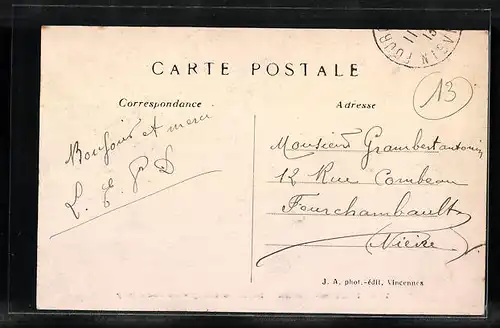 CARTE POSTALE
Correspondance
Adresse
13
Bonjour et merci
Monsieur Grambert antonin
12 Rue Combeau
Fourchambault
(Nièvre)
J. A. phot.-édit, Vincennes